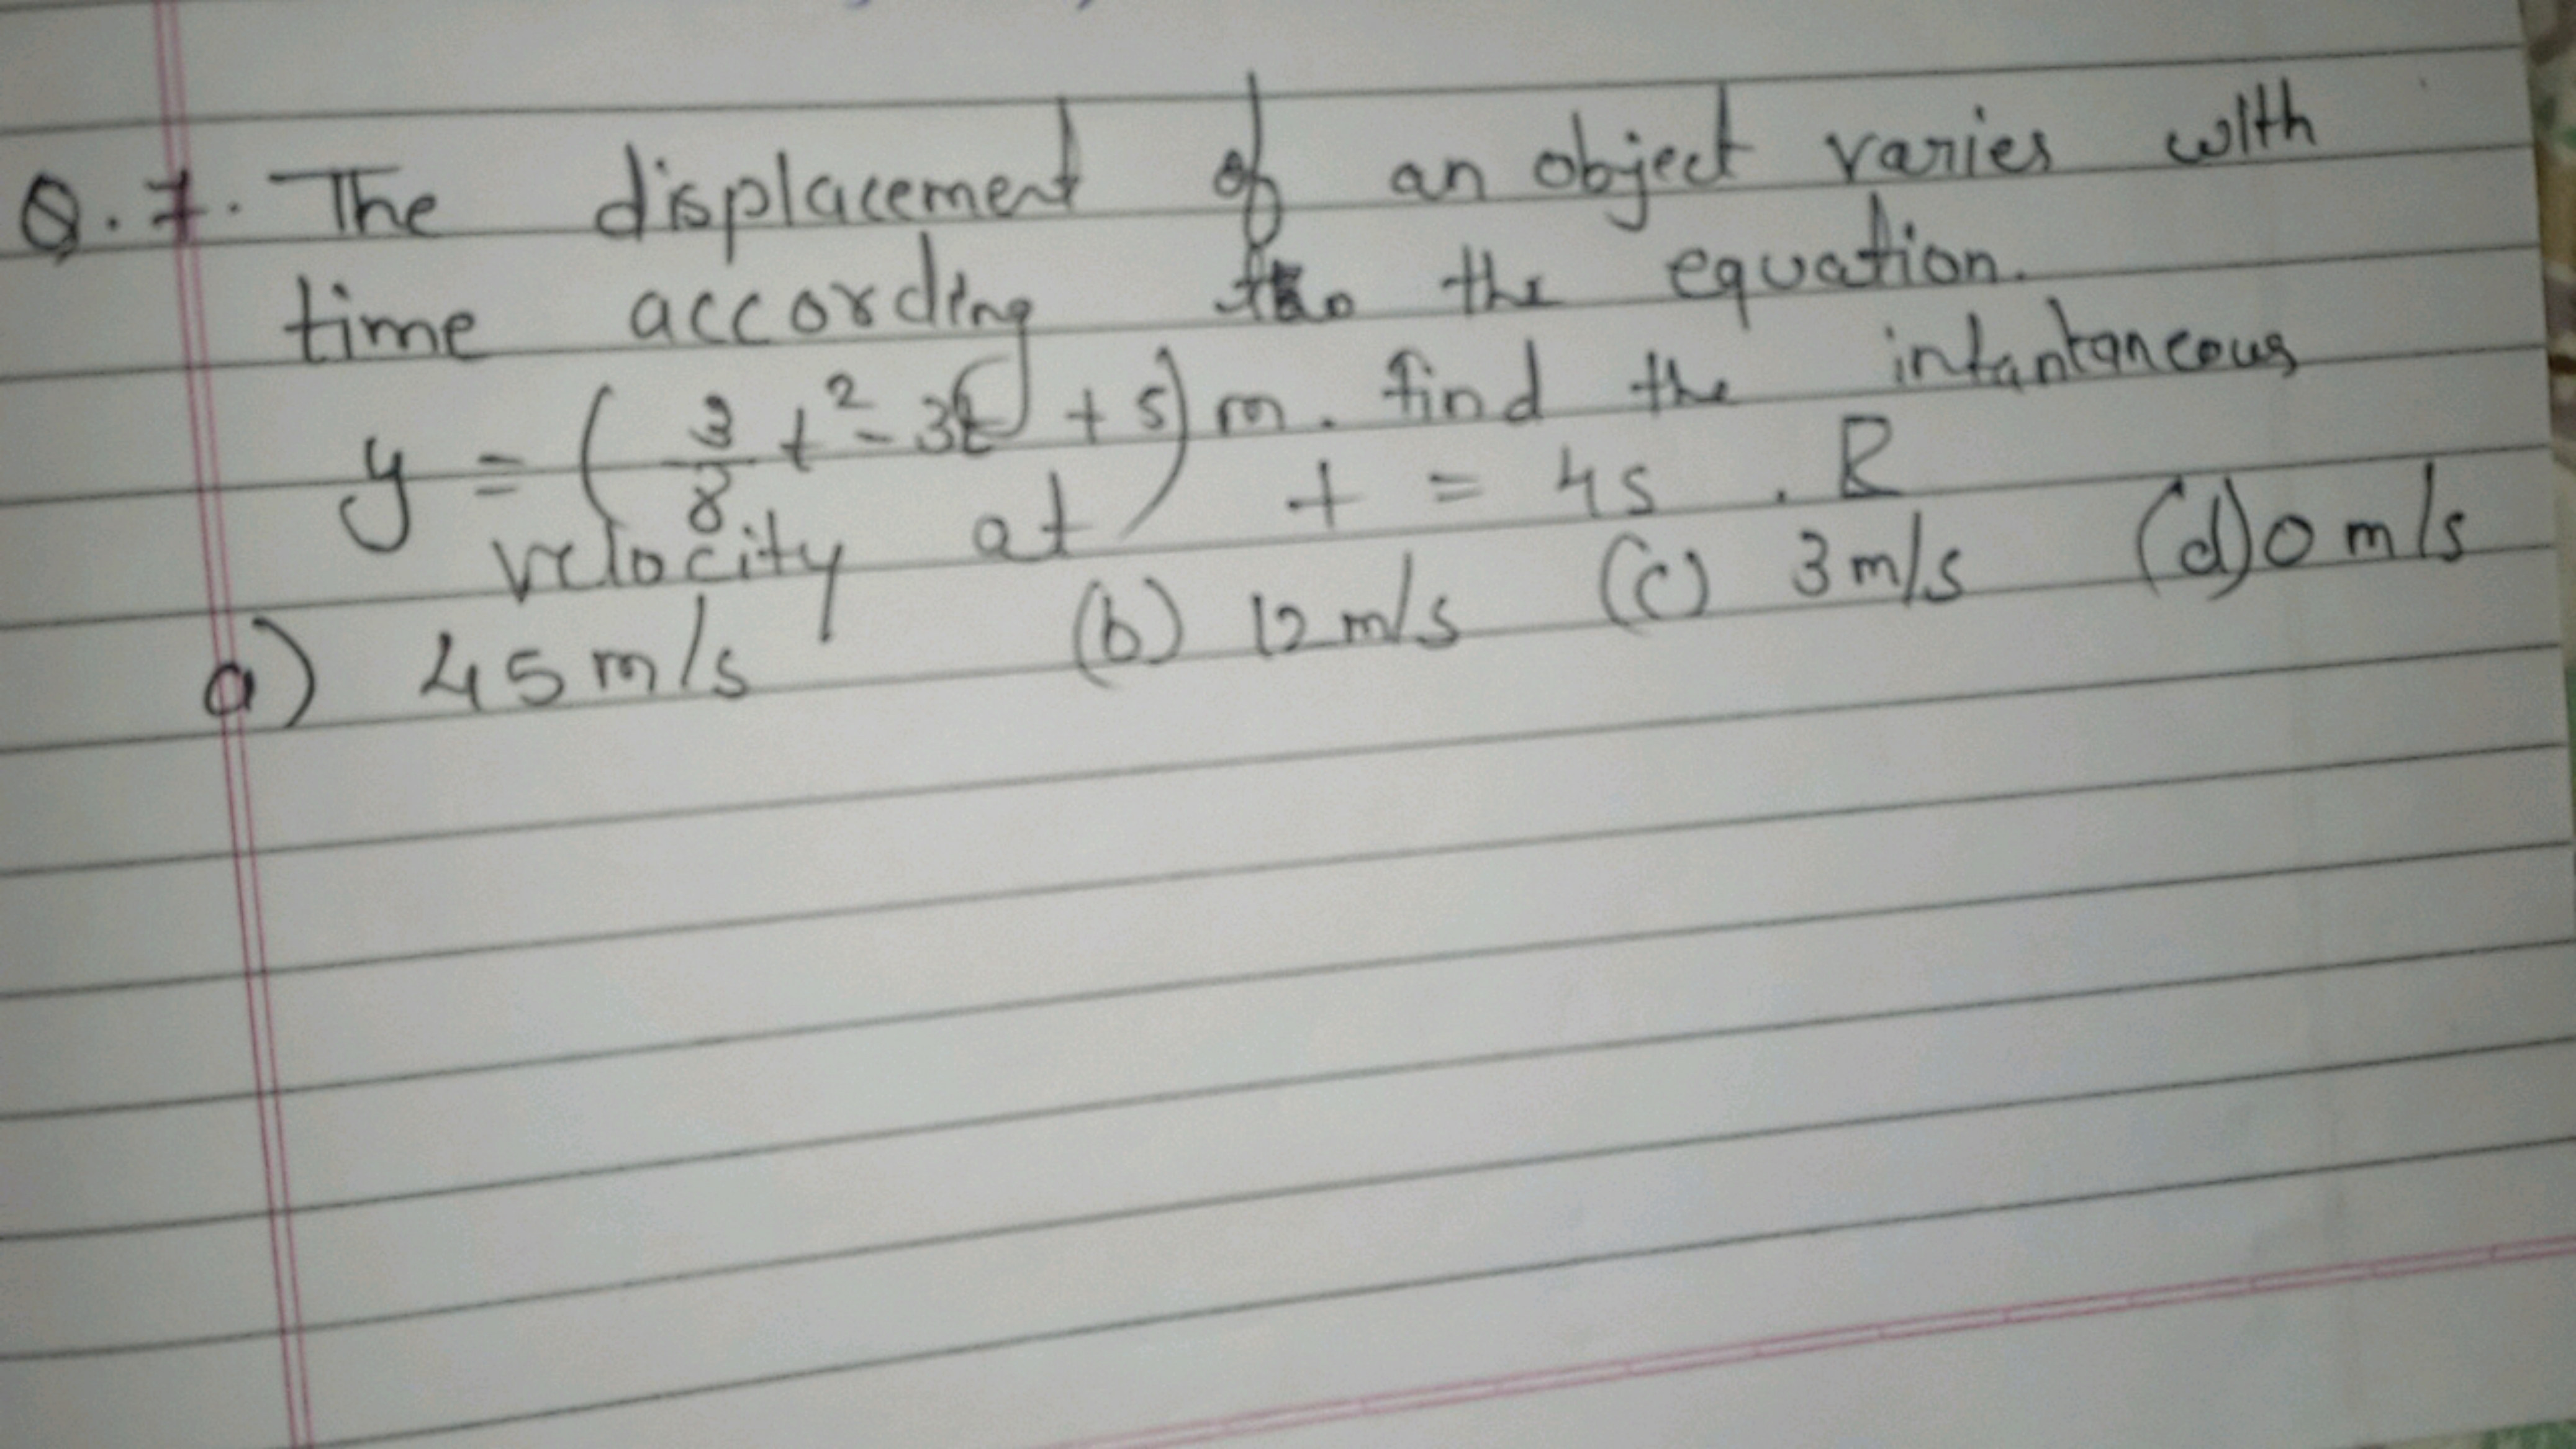 Q.7. The displacement of an object varies with
time according to the equation.
y = (3/8 t² - 3t + 5) m. find the intantaneous
velocity at t = 4s . R
a) 45 m/s (b) 12 m/s (c) 3 m/s (d) 0 m/s